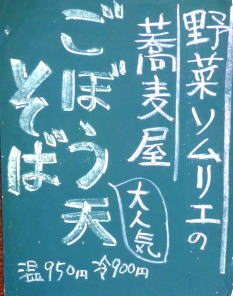 野菜ソムリエの
蕎麦屋
大人気
ごぼう天
そば
温950円 冷900円